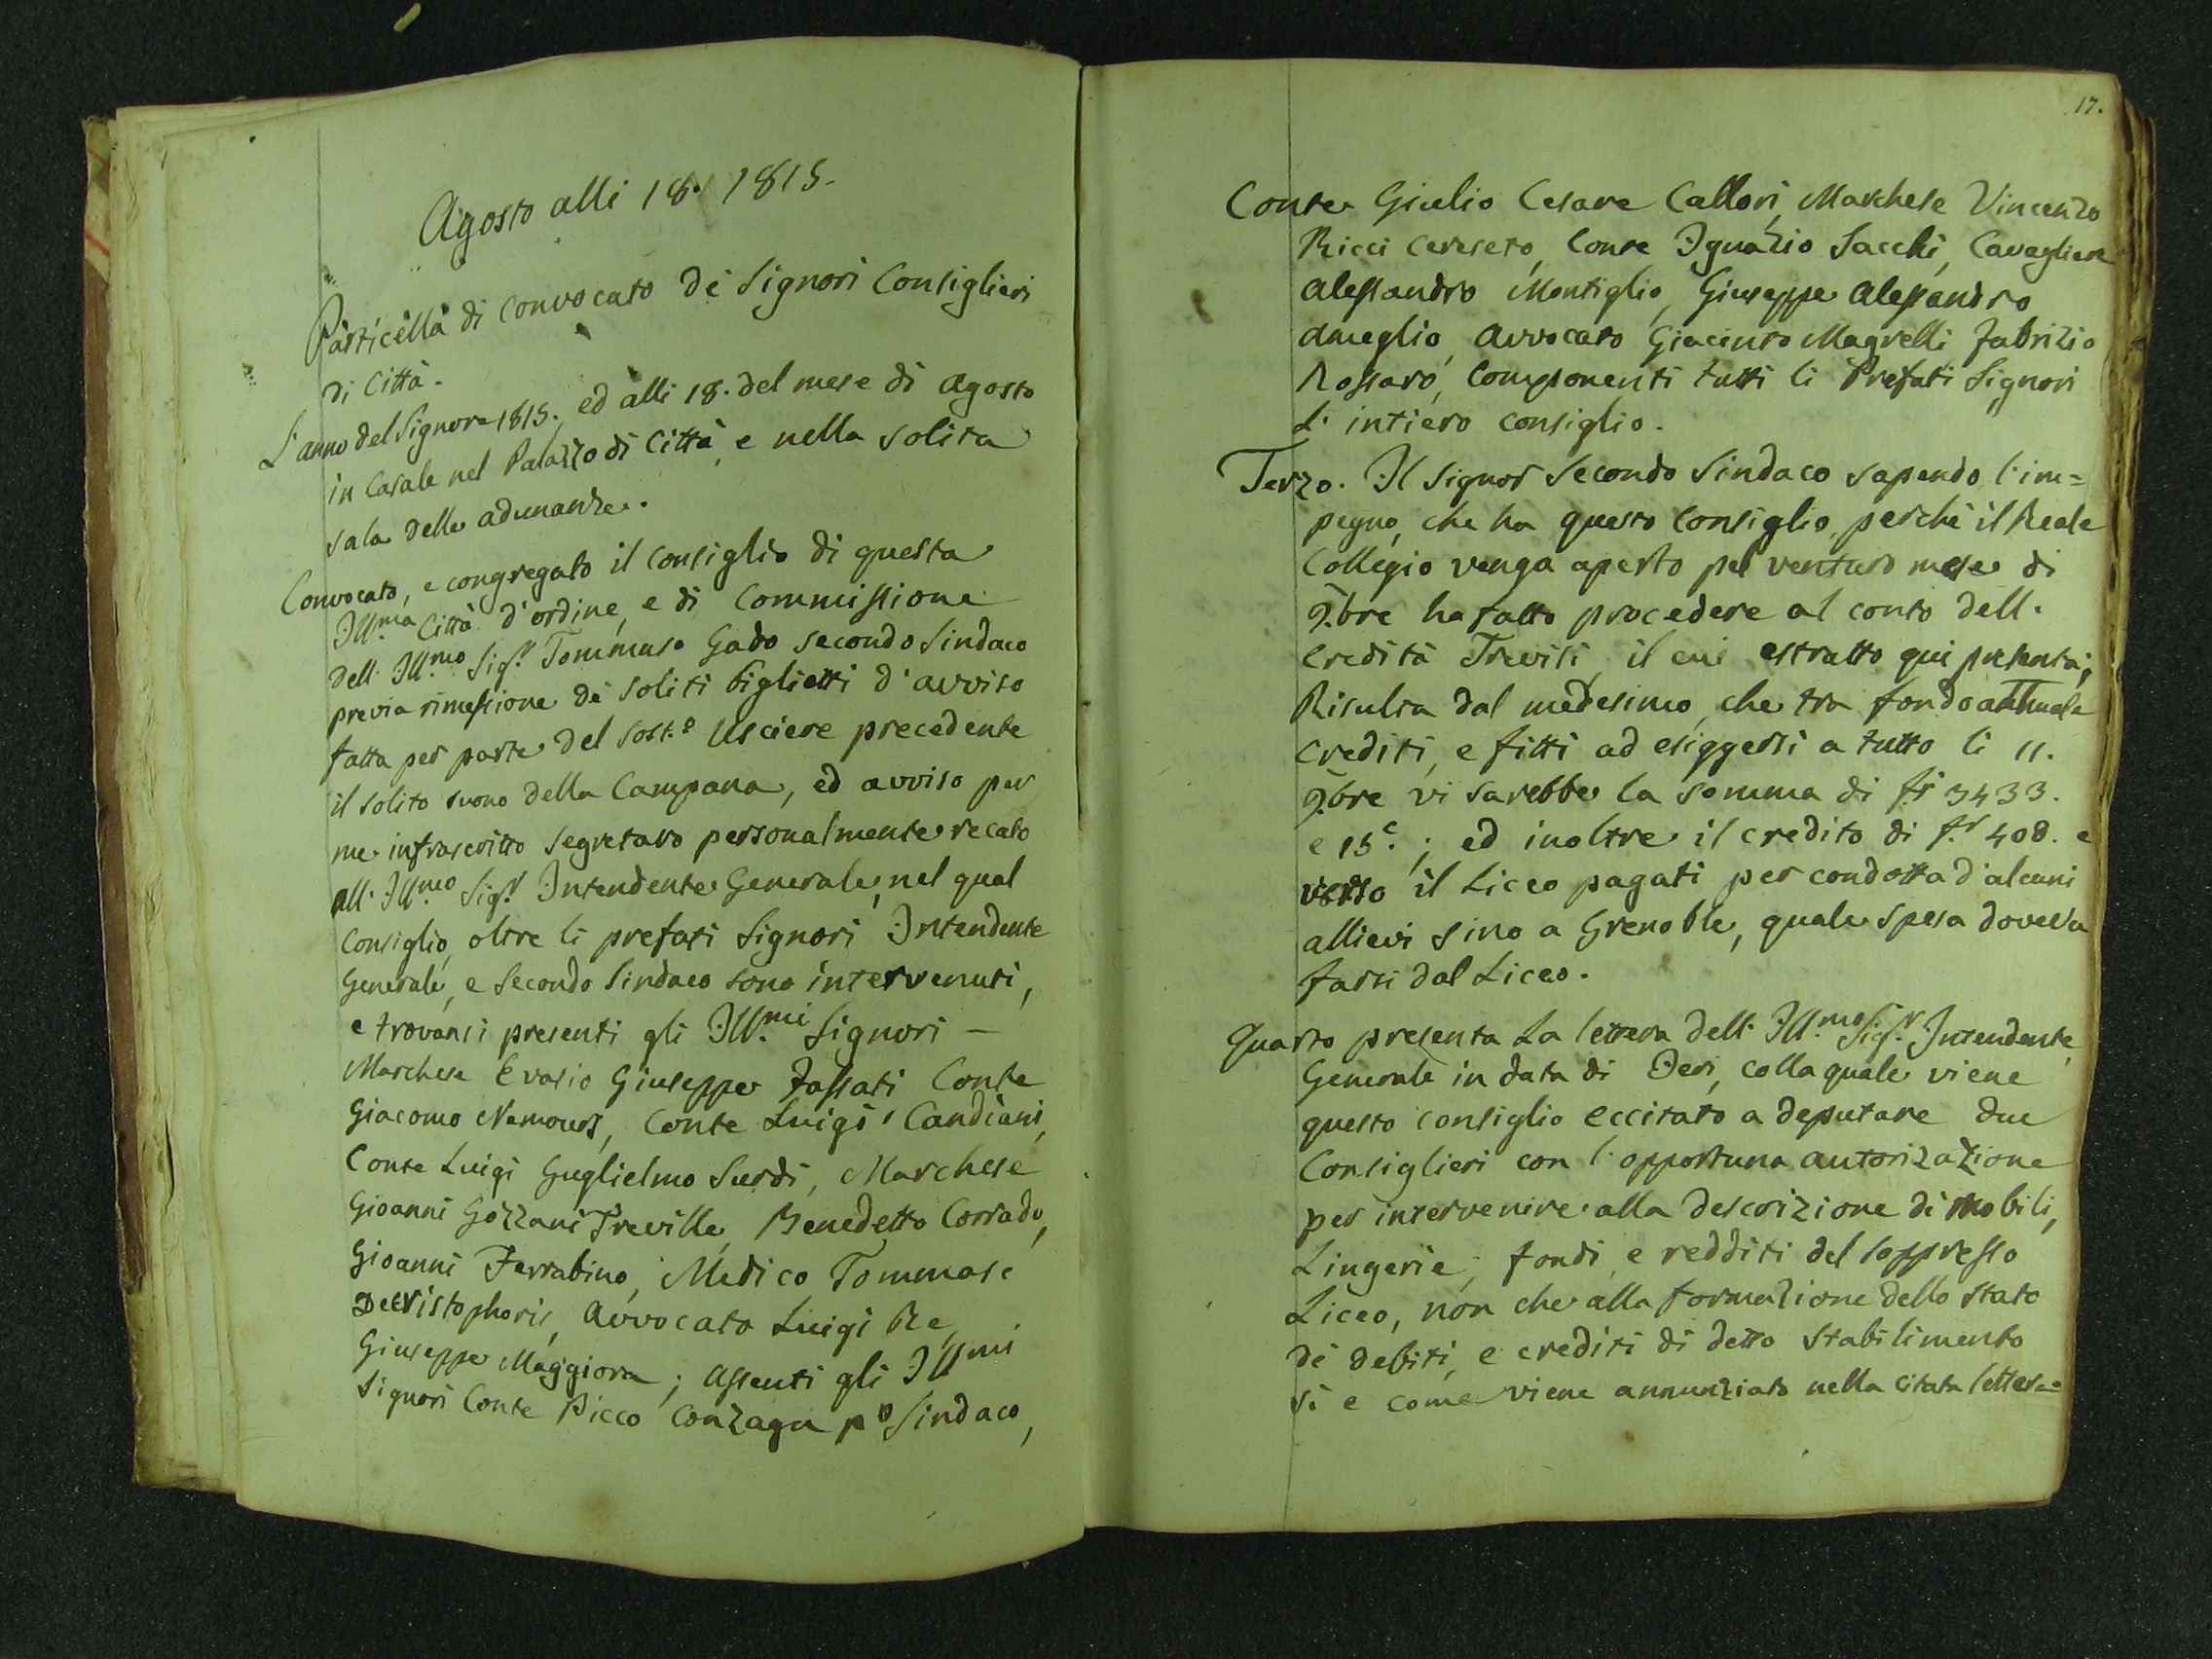 Agosto alli 18. 1815.
Particella di convocato de Signori Consiglieri
di Città.
L'anno del Signore 1815. ed alli 18. del mese di Agosto
in Casale nel Palazzo di Città, e nella solita
sala delle adunanze.
Convocato, e congregato il Consiglio di questa
Ill.ma Città d'ordine, e di Commissione
dell' Ill.mo Sig.r Tommaso Gado secondo Sindaco
previa rimessione de soliti biglietti d'avviso
fatta per parte del Sost.o Usciere precedente
il solito suono della Campana, ed avviso per
me infrascritto Segretaro personalmente recato
all' Ill.mo Sig.r Intendente Generale, nel qual
Consiglio, oltre li prefati Signori Intendente
Generale, e Secondo Sindaco sono intervenuti,
e trovansi presenti gli Ill.mi Signori —
Marchese Evasio Giuseppe Fassati Conte
Giacomo Nemours, Conte Luigi Candiani,
Conte Luigi Guglielmo Surdi, Marchese
Gioanni Gozzani Treville, Benedetto Corrado,
Gioanni Ferrabino, Medico Tommaso
Decristophoris, Avvocato Luigi Re,
Giuseppe Maggiora; Assenti gli Ill.mi
Signori Conte Picco Gonzaga p.o Sindaco,
17.
Conte Giulio Cesare Callori, Marchese Vincenzo
Ricci Cereseto, Conte Ignazio Sacchi, Cavagliere
Alessandro Montiglio, Giuseppe Alessandro
Ameglio, Avvocato Giacinto Magrelli, Fabrizio
Rossaro, Componenti tutti li Prefati Signori
L' intiero consiglio.
Terzo. Il Signor Secondo Sindaco sapendo l'im=
pegno, che ha questo Consiglio, perchè il Reale
Collegio venga aperto pel venturo mese di
9.bre ha fatto procedere al conto dell'
eredità Trevisi, il cui estratto qui presenta;
Risulta dal medesimo, che tra fondo attuale
crediti, e fitti ad esiggersi a tutto li 11.
9.bre vi sarebbe la somma di f.i 3433.
e 15 c.; ed inoltre il credito di f.i 408. e
verso il Liceo pagati per condotta d'alcuni
allievi sino a Grenoble, quale spesa doveva
farsi dal Liceo.
Quarto presenta La lettera dell' Ill.mo Sig.r Intendente
Generale in data di Jeri, colla quale viene
questo consiglio eccitato a deputare due
Consiglieri con l'opportuna autorizazione
per intervenire alla descrizione dè mobili,
Lingerie, fondi, e redditi del soppresso
Liceo, non che alla formazione dello stato
dè debiti, e crediti di detto Stabilimento
si e come viene annunziato nella citata lettera.